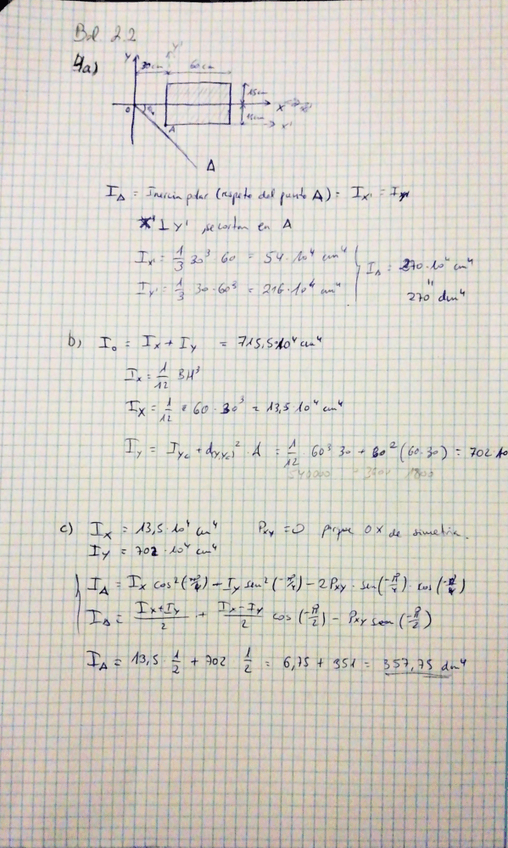 Bol 2.2
4a)
Y Y'
30cm 60cm
15cm
O X
A 15cm X'
Δ
I_A = Inercia polar (respeto del punto A) = I_x' = I_y'
X' ⊥ Y' se cortan en A
I_x' = 1/3 30³·60 = 54·10⁴ cm⁴
I_A = 270·10⁴ cm⁴
I_y' = 1/3 30·60³ = 216·10⁴ cm⁴
"
270 dm⁴
b) I_o = I_x + I_y = 715,5·10⁴ cm⁴
I_x = 1/12 BH³
I_x = 1/12 · 60·30³ = 13,5·10⁴ cm⁴
I_y = I_yc + d(y,yc)²·A = 1/12 60³·30 + 60²(60·30) = 702·10
540000 + 3600 1800
c) I_x = 13,5·10⁴ cm⁴ P_xy = 0 porque OX de simetria.
I_y = 702·10⁴ cm⁴
I_Δ = I_x cos²(-π/4) + I_y sen²(-π/4) - 2P_xy · sen(-π/4) · cos(-π/4)
I_Δ = (I_x+I_y)/2 + (I_x-I_y)/2 cos(-π/2) - P_xy sen(-π/2)
I_Δ = 13,5 · 1/2 + 702 1/2 = 6,75 + 351 = 357,75 dm⁴